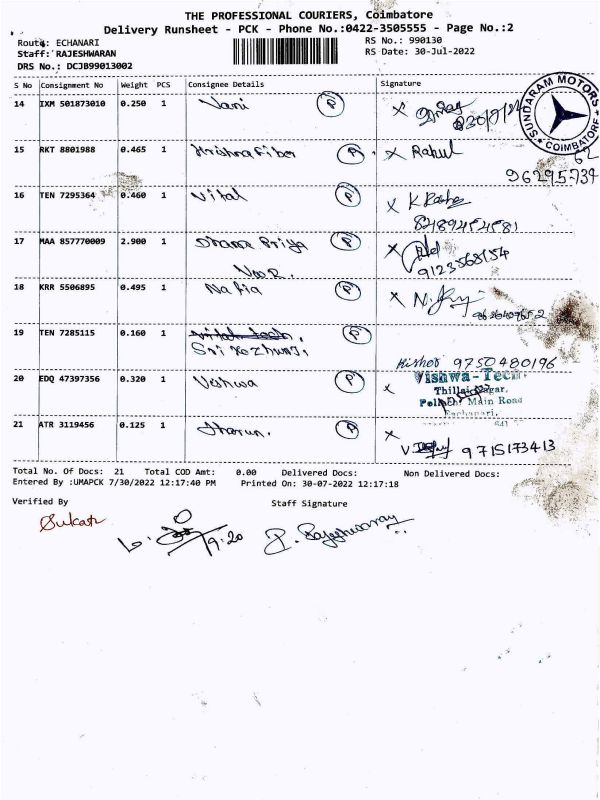 THE PROFESSIONAL COURIERS, Coimbatore
Delivery Runsheet - PCK - Phone No.:0422-3505555 - Page No.:2
Route: ECHANARI
RS No.: 990130
Staff: RAJESHWARAN
RS Date: 30-Jul-2022
DRS No.: DCJB99013002
S No Consignment No Weight PCS Consignee Details Signature
14 IXM 501873010 0.250 1 Vani P
SUNDARAM MOTORS COIMBATORE
15 RKT 8801988 0.465 1 Krishna Fiber P Rahul
9629573762
16 TEN 7295364 0.460 1 Vital P K
8489454581
17 MAA 857770009 2.900 1 Dhana Priya P
Noor. 9123568154
18 KRR 5506895 0.495 1 Nafia P N.
19 TEN 7285115 0.160 1 P
Sri Kozhunji Kishor 9750480196
20 EDQ 47397356 0.320 1 Veshwa P Vishwa-Tech
Thillai Nagar,
Pollachi Main Road
Eachanari,
641
21 ATR 3119456 0.125 1 Tharun. P
9715173413
Total No. Of Docs: 21 Total COD Amt: 0.00 Delivered Docs: Non Delivered Docs:
Entered By :UMAPCK 7/30/2022 12:17:40 PM Printed On: 30-07-2022 12:17:18
Verified By Staff Signature
Sukat
9:20
P. Rajeshwaran